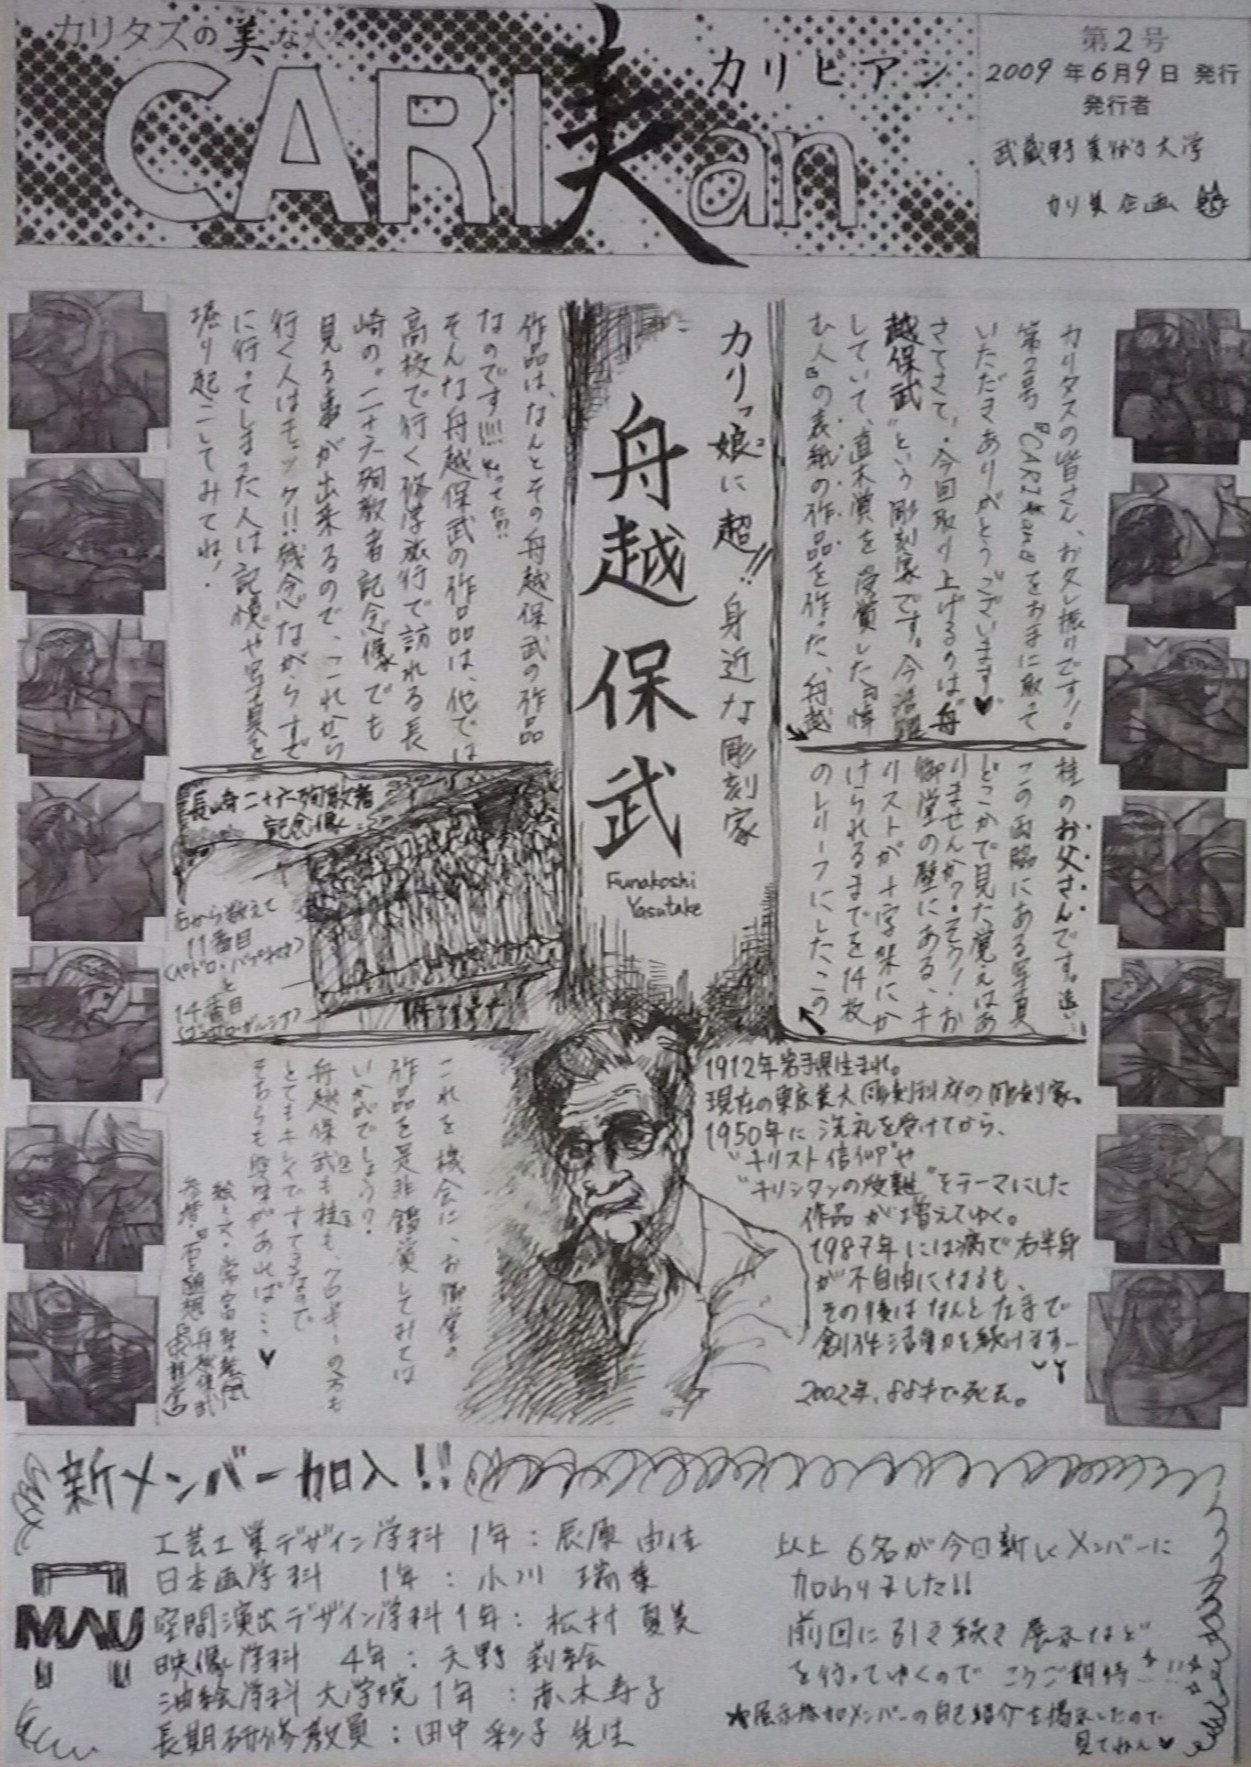 カリタスの美な人々
CARI美an
カリビアン
第2号
2009年6月9日 発行
発行者
武蔵野美術大学
カリ美企画
カリタスの皆さん、お久し振りです!。
第2号『CARI美an』をお手に取って
いただきありがとうございます♥
さてさて、今回取り上げるのは"舟
越保武"という彫刻家です。今活躍
していて、直木賞を受賞した『悼
む人』の表紙の作品を作った、舟越
桂のお父さんです。
この両脇にある写真
どこかで見た覚えはあ
りませんか?そう!お
御堂の壁にある、キ
リストが十字架にか
けられるまでを14枚
のレリーフにしたこの
カリっ娘に超!!身近な彫刻家
舟越保武
Funakoshi
Yasutake
作品は、なんとその舟越保武の作品
なのです!!!知ってた?!
そんな舟越保武の作品は、他では
高校で行く修学旅行で訪れる長
崎の。二十六殉教者記念像でも
見る事が出来るので、これから
行く人はチェック!!残念ながらすで
に行ってしまった人は記憶や写真を
堀り起こしてみてね!
長崎二十六殉教者
記念像
右から数えて
11番目
と
14番目
1912年岩手県生まれ。
現在の東京芸大彫刻科卒の彫刻家。
1950年に洗礼を受けてから、
"キリスト信仰"や
"キリシタンの受難"をテーマにした
作品が増えてゆく。
1987年には病で右半身
が不自由になるも、
その後はなんと左手で
創作活動を続けます
2002年、
これを機会に、お御堂の
作品を是非鑑賞してみては
いかがでしょうか?
舟越保武も桂も、
とてもキレイですてきなので
そちらも興味があれば…♥
絵と文・常富
参考:『巨岩と花びら
新メンバー加入!!
MAU
工芸工業デザイン学科 1年:辰原 由佳
日本画学科 1年:小川 瑞葉
空間演出デザイン学科1年:松村 夏美
映像学科 4年:天野 莉絵
油絵学科 大学院1年:赤木寿子
長期研修教員:田中 彩子 先生
以上6名が今日新しくメンバーに
加わりました!!
前回に引き続き展示など
を行ってゆくのでこうご期待
★展示参加メンバーの自己紹介を掲示したので
見てねん♥